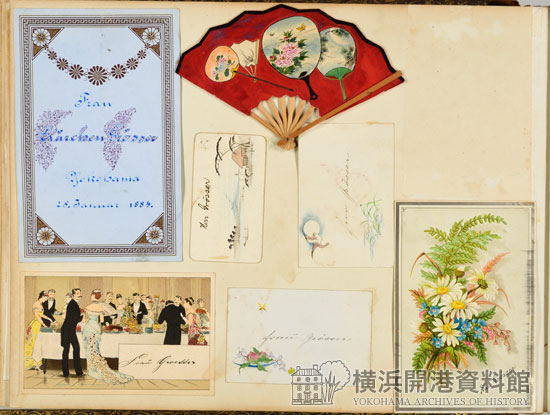 Frau
Klärchen Grösser
Yokohama
28. Januar 1884.
Herr Grösser
Frau Grösser
Frau Grösser
横浜開港資料館
YOKOHAMA ARCHIVES OF HISTORY